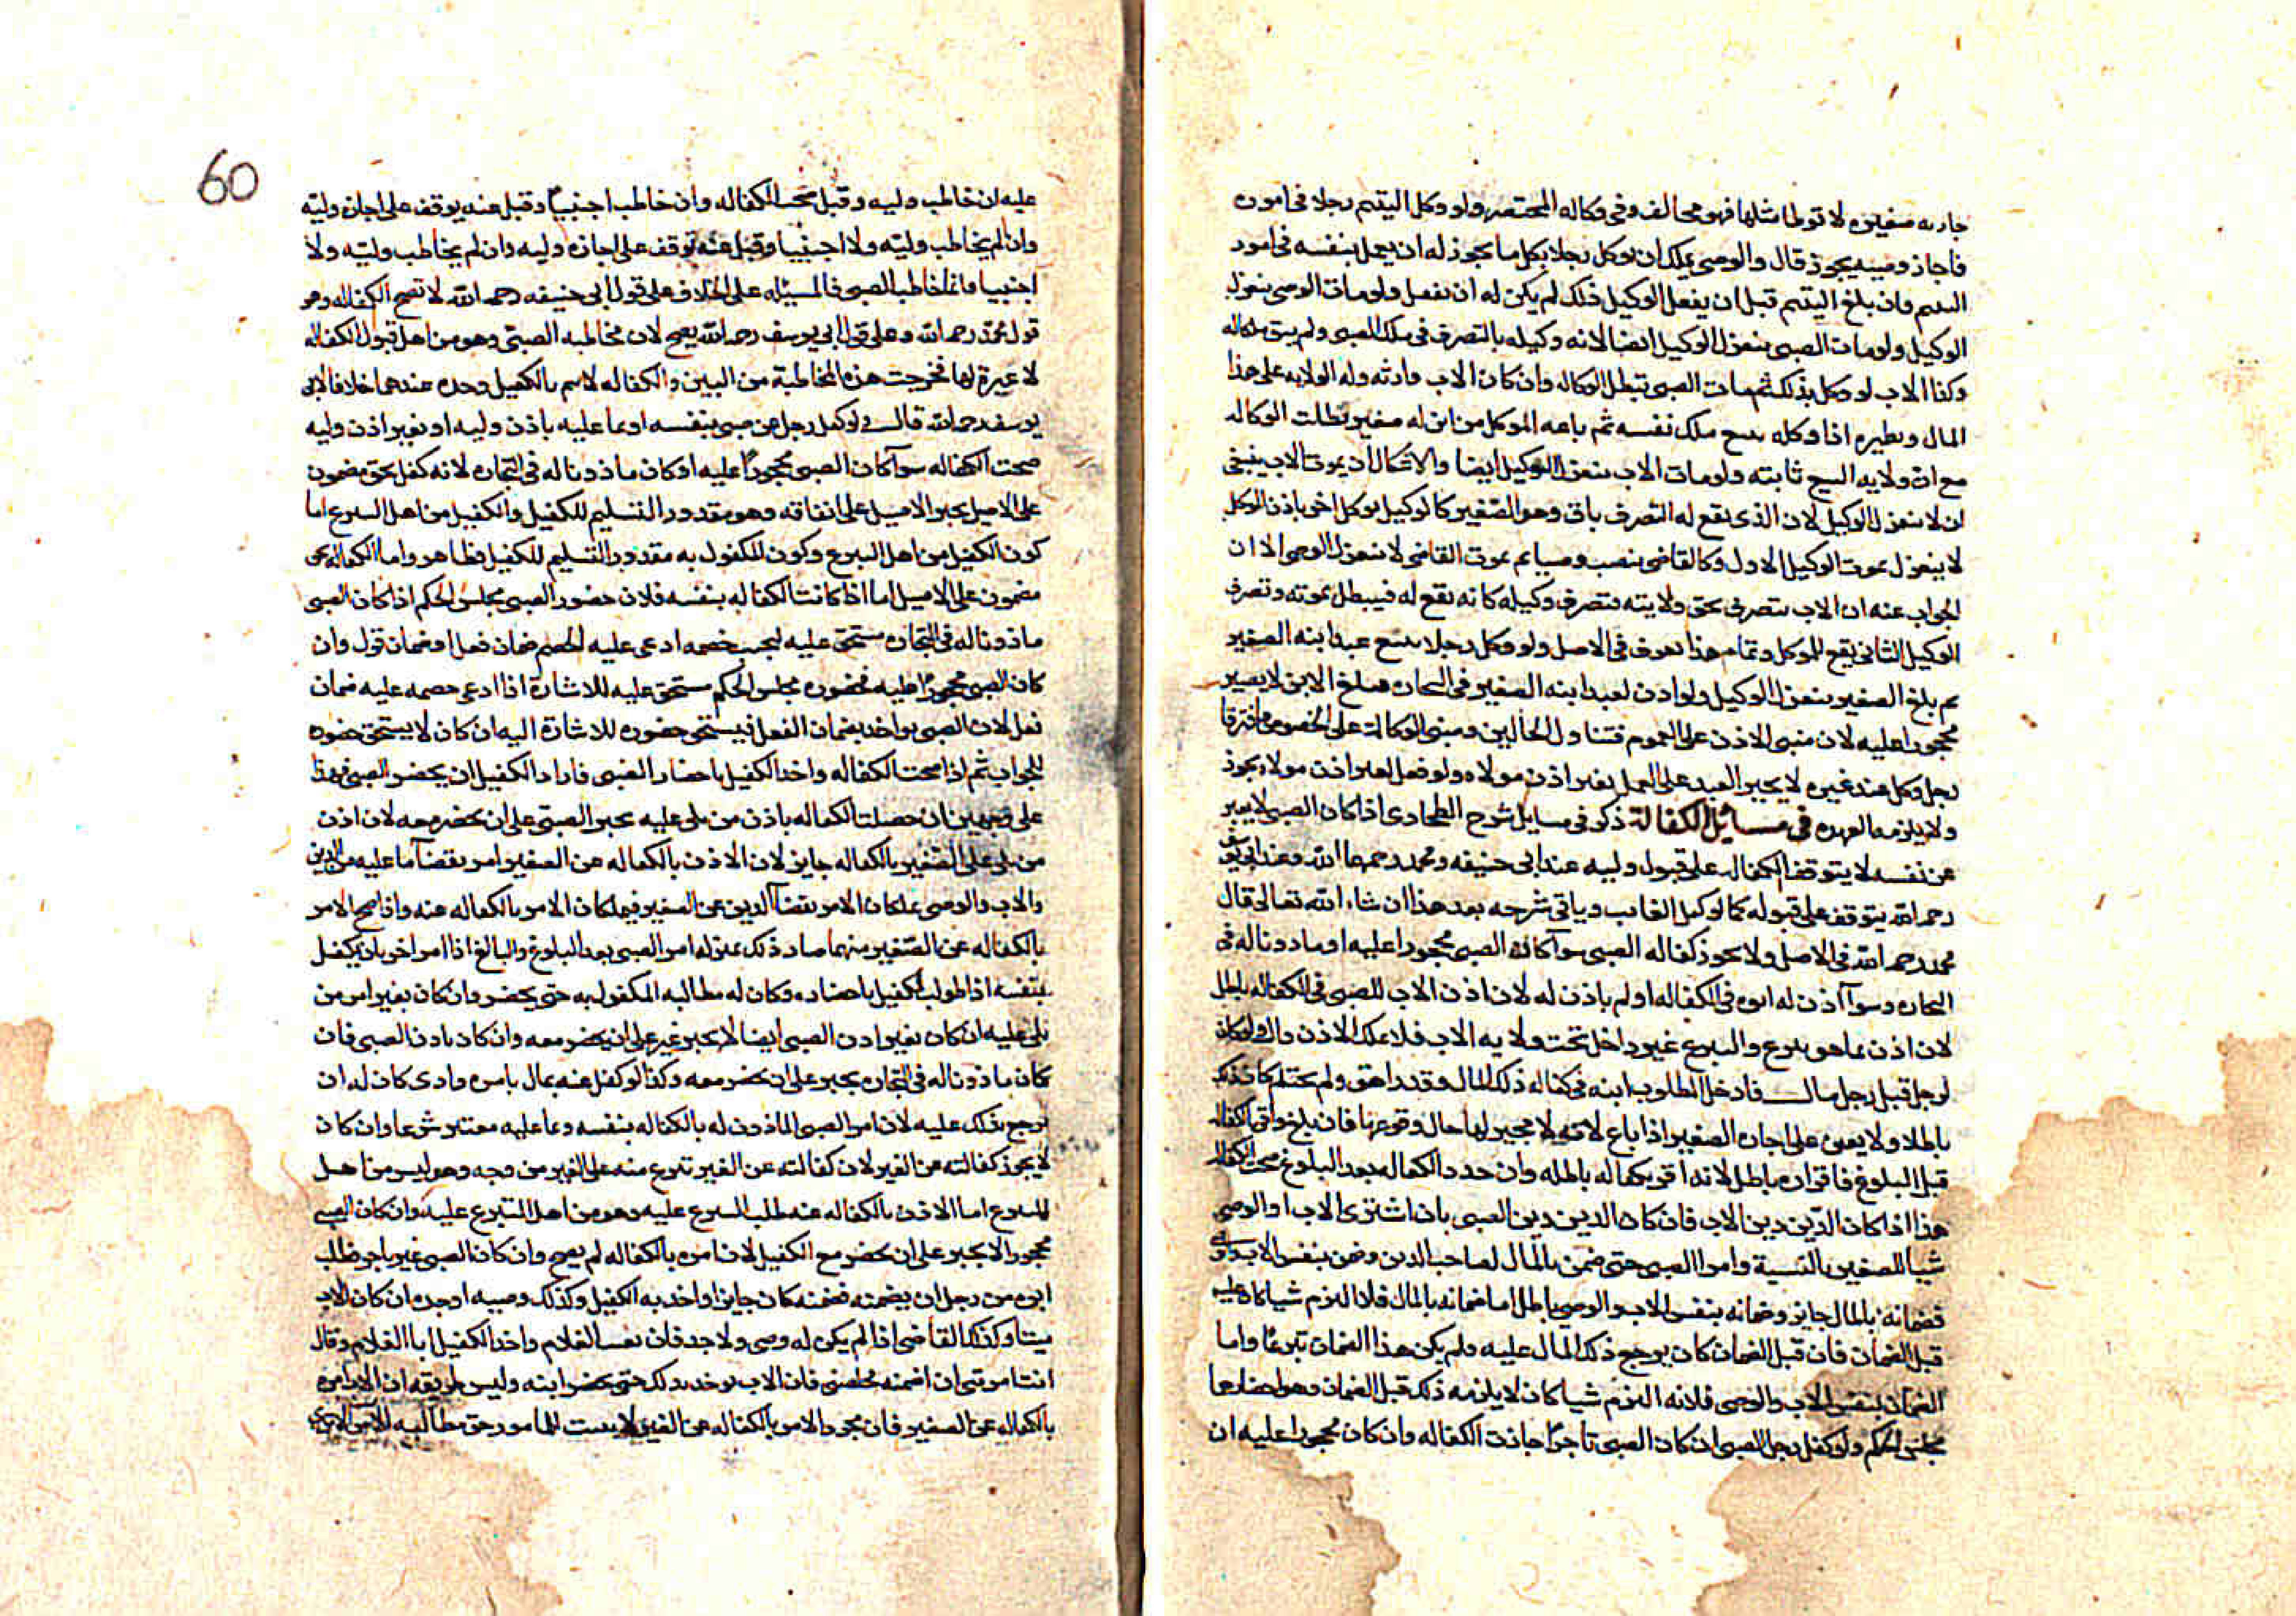 جاريه صغيره لا توطا مثلها فهو مخالف وفي وكاله المختصر ولو وكل اليتيم رجلا في اموره
فاجاز وصيه يجوز قال والوصي يملك ان يوكل رجلا بكل ما يجوز له ان يعمل بنفسه في امور
اليتيم فان بلغ اليتيم قبل ان يفعل الوكيل ذلك لم يكن له ان يفعل ولو مات الوصي ينعزل
الوكيل ولو مات الصبي ينعزل الوكيل ايضا لانه وكيله بالتصرف في ملك الصبي ولم يبق ملكا له
وكذا الاب لو وكل بذلك ثم مات الصبي تبطل الوكاله وان كان الاب وارثه وله الولايه على هذا
المال ونظيره اذا وكله ببيع ملك نفسه ثم باعه الموكل من ابن له صغير بطلت الوكاله
مع ان ولايه البيع ثابته ولو مات الاب ينعزل الوكيل ايضا والاشكال ان بموت الاب ينبغي
ان لا ينعزل الوكيل لان الذي يقع له التصرف باق وهو الصغير كالوكيل يوكل اخر باذن الموكل
لا ينعزل بموت الوكيل الاول وكالقاضي ينصب وصيا ثم بموت القاضي لا ينعزل الوصي الا ان
الجواب عنه ان الاب يتصرف بحق ولايته فتصرف وكيله كانه يقع له فيبطل بموته وتصرف
الوكيل الثاني يقع للموكل وتمام هذا يعرف في الاصل ولو وكل رجلا ببيع عبد ابنه الصغير
ثم بلغ الصغير ينعزل الوكيل ولو اذن لعبد ابنه الصغير في التجاره فبلغ الابن لا يصير
محجورا عليه لان مبنى الاذن على العموم فتناول الحالين ومبنى الوكالة على الخصوص فافترقا
رجل وكل عند غيره لا يجبر العبد على العمل بغير اذن مولاه ولو فعل بغير اذن مولاه يجوز
ولا يلزمه العهده في مسائل الكفالة ذكر في مسايل شرح الطحاوي اذا كان الصبي لا يعبر
عن نفسه لا يتوقف الكفاله على قبول وليه عند ابي حنيفه ومحمد رحمهما الله وعند ابي يوسف
رحمه الله يتوقف على قبوله كما لو كفل الغايب وياتي شرحه بعد هذا ان شاء الله تعالى قال
محمد رحمه الله في الاصل ولا يجوز كفاله الصبي سوآ كان الصبي محجورا عليه او ماذونا له في
التجاره وسوآ اذن له ابوه في الكفاله او لم ياذن له لان اذن الاب للصبي في الكفاله باطل
لان اذن بما هو تبرع والتبرع غير داخل تحت ولايه الاب فلا يملك الاذن وان كان
لرجل قبل رجل مال فادخل المطلوب ابنه في كفاله ذلك المال وقد راهق ولم يحتلم كان ذلك
باطلا ولا يعمل على اجازه الصغير اذا باع لانه لا مجيز لها حال وقوعها فان بلغ واقر بالكفاله
قبل البلوغ فاقراره باطل لانه اقر بكفاله باطله وان جدد الكفاله بعد البلوغ صحت الكفاله
هذا اذا كان الدين دين الاب فان كان الدين دين الصبي بان اشترى الاب او الوصي
شيا للصغير بالنسية وامر الصبي حتى ضمن بالمال لصاحب الدين وضمن بنفس الاب
فضمانه بالمال جايز وضمانه بنفس الاب والوصي باطل اما ضمانه بالمال فلانه التزم شيا كان عليه
قبل الضمان فان قبل الضمان كان يرجع ذلك المال عليه ولم يكن هذا الضمان تبرعا واما
الضمان بنفس الاب والوصي فلانه التزم شيا كان لا يلزمه ذلك قبل الضمان وهو احضارهما
مجلس الحكم ولو كفل رجل لصبي ان كان الصبي تاجرا جازت الكفاله وان كان محجورا عليه ان
60
عليه ان خاطب وليه وقبل تصح الكفاله وان خاطب اجنبيا وقبل عنه يوقف على اجازه وليه
وان لم يخاطب وليه ولا اجنبيا وقبل عنه توقف على اجازه وليه وان لم يخاطب وليه ولا
اجنبيا وانما خاطب الصبي فالمسئله على الخلاف على قول ابي حنيفه رحمه الله لا تصح الكفاله وهو
قول محمد رحمه الله وعلى قول ابي يوسف رحمه الله يصح لان مخاطبه الصبي وهو من اهل قبول الكفاله
لا عبرة لها فخرجت هذه المخاطبة من البين والكفاله لا تتم بالكفيل وحده عندهما خلافا لابي
يوسف رحمه الله قال ولو كفل رجل عن صبي بنفسه او بما عليه باذن وليه او بغير اذن وليه
صحت الكفاله سوآ كان الصبي محجورا عليه او كان ماذونا له في التجاره لانه كفل بحق مضمون
على الاصيل يجبر الاصيل على ايفائه وهو مقدور التسليم للكفيل والكفيل من اهل التبرع اما
كون الكفيل من اهل التبرع وكون المكفول به مقدور التسليم للكفيل فظاهر واما الكفاله بحق
مضمون على الاصيل اما اذا كانت الكفاله بنفسه فلان حضور الصبي مجلس الحكم اذا كان الصبي
ماذونا له في التجاره مستحق عليه ليجيب خصمه ادعى عليه الخصم ضمان فعل او ضمان قول وان
كان الصبي محجورا عليه فحضوره مجلس الحكم مستحق عليه للاشارة اذا ادعى خصمه عليه ضمان
فعل لان الصبي يواخذ بضمان الفعل فيستحق حضوره للاشارة اليه ان كان لا يستحق حضوره
للجواب ثم اذا صحت الكفاله واخذ الكفيل باحضار الصبي فاراد الكفيل ان يحضر الصبي فهذا
على وجهين ان حصلت الكفاله باذن من يلي عليه يجبر الصبي على ان يحضر معه لان اذن
من يلي على الصغير بالكفاله جايز لان الاذن بالكفاله عن الصغير امر بقضآ ما عليه من الدين
والاب والوصي يملكان الامر بقضآ الدين عن الصغير فيملكان الامر بالكفاله عنه واذا صح الامر
بالكفاله عن الصغير منهما صار ذلك بمنزله امر الصبي بعد البلوغ والبالغ اذا امر اخر بان يكفل
بنفسه اذا طولب الكفيل باحضاره وكان له مطالبه المكفول به حتى يحضر وان كان بغير امر من
يلي عليه ان كان بغير اذن الصبي ايضا لا يجبر على ان يحضر معه وان كان باذن الصبي فان
كان ماذونا له في التجاره يجبر على ان يحضر معه وكذا لو كفل عنه بمال بامره وادى كان له ان
يرجع بذلك عليه لان امر الصبي الماذون له بالكفاله بنفسه وبما عليه معتبر شرعا وان كان
لا يجوز كفالته عن الغير لان كفالته عن الغير تبرع منه على الغير من وجه وهو ليس من اهل
التبرع اما الاذن بالكفاله عنه طلب التبرع عليه وهو من اهل التبرع عليه وان كان الصبي
محجورا لا يجبر على ان يحضر مع الكفيل لان امره بالكفاله لم يصح وان كان الصبي غير تاجر فطلب
ابوه من رجل ان يضمنه فضمنه كان جايزا واخذ به الكفيل وكذلك وصيه او جده ان كان الاب
ميتا وكذلك القاضي اذا لم يكن له وصي ولا جد فان تغيب الغلام واخذ الكفيل ابا الغلام وقال
انت امرتني ان اضمنه فخلصني فان الاب يوخذ بذلك حتى يحضر ابنه وليس طريقه ان الاب امره
بالكفاله عن الصغير فان مجرد الامر بالكفاله عن الغير لا يثبت للمامور حق مطالبه الامر